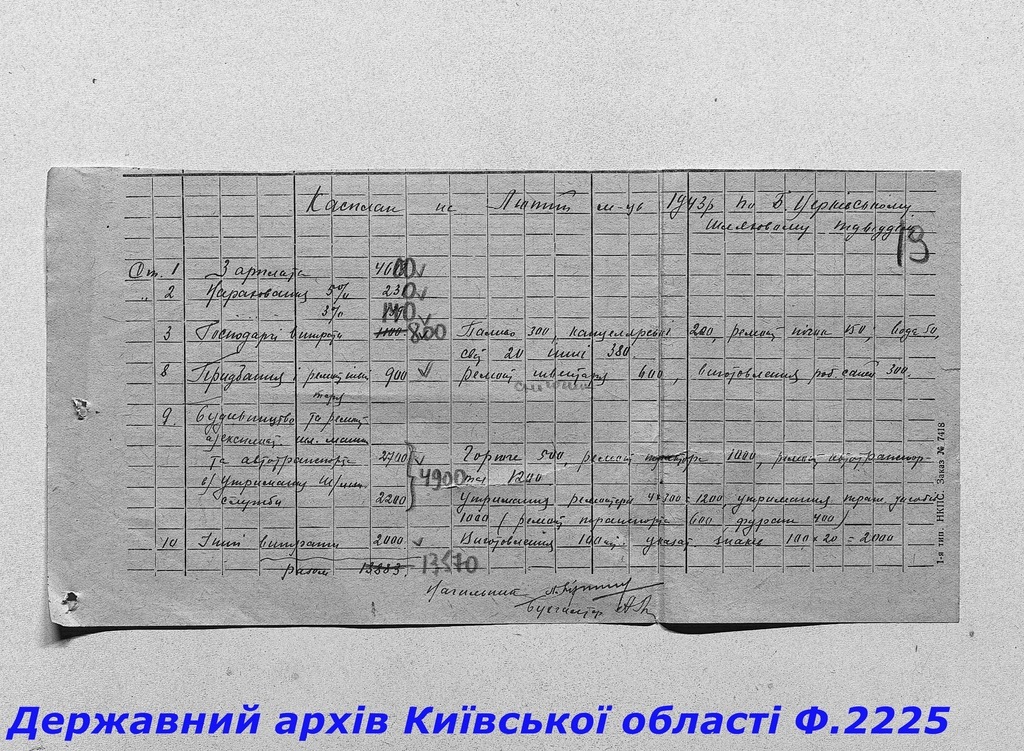 Касплан на Лютий м-ць 1943р по Б Церківському
Шляховому відділу
19
Ст. 1 Зарплата 4600
„ 2 Нарахования 5% 230
3% 140
3 Господарчі витрати 1100 800 Паливо 300, канцелярські 200, ремонт 150; вода 50,
20 інші 380.
8 Придбання і ремонт інвен 900 ремонт инвентаря 600, виготовлення роб саней 300.
таря
9. Будивництво та ремонт
а) експлоат. шл. машин
та автотранспорта 2700 Горюче 500, ремонт 1000, ремонт автотранспор-
4900 та 1200
в) утримання
служби 2200 Утримання ремонтерів 4×300=1200, утримання
1000 (ремонт 600, 400)
10 Інші витрати 2000 Виготовлення 100 шт. указат. знаків 100×20=2000
разом 13883. 13570
Начальник
Бухгалтер
1-я тип. НКПС. Заказ № 7418
Державний архів Київської області Ф.2225